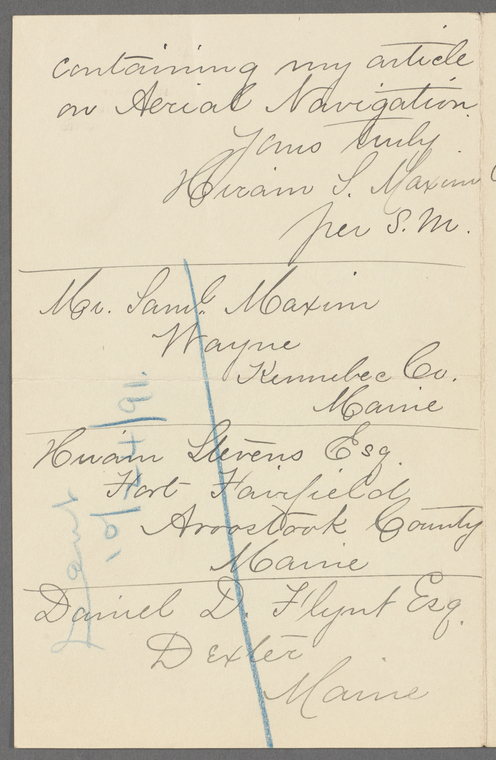 containing my article
on Aerial Navigation.
Yours truly
Hiram S. Maxim
per S. M.
Mr. Saml. Maxim
Wayne
Kennebec Co.
Maine
Hiram Stevens Esq.
Fort Fairfield
Aroostook County
Maine
Daniel D. Flynt Esq.
Dexter
Maine
Sent
10/24/91.